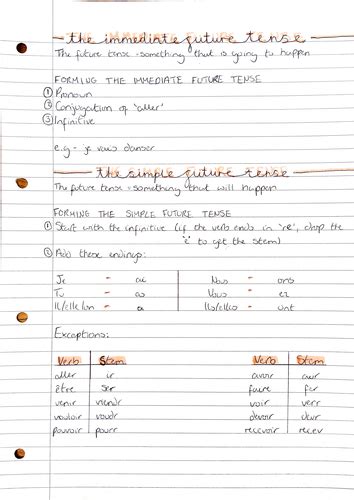 the immediate future tense
The future tense - something that is going to happen
FORMING THE IMMEDIATE FUTURE TENSE
① Pronoun
② Conjugation of 'aller'
③ Infinitive
e.g - je vais danser
the simple future tense
The future tense - something that will happen
FORMING THE SIMPLE FUTURE TENSE
① Start with the infinitive (if the verb ends in 're', drop the
'e' to get the stem)
② Add these endings:
Je - ai Nous - ons
Tu - as Vous - ez
Il/elle/on - a Ils/elles - ont
Exceptions:
Verb Stem Verb Stem
aller ir avoir aur
être ser faire fer
venir viendr voir verr
vouloir voudr devoir devr
pouvoir pourr recevoir recev